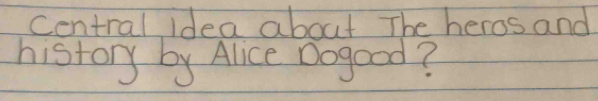 Central idea about The heros and
history by Alice Dogood?